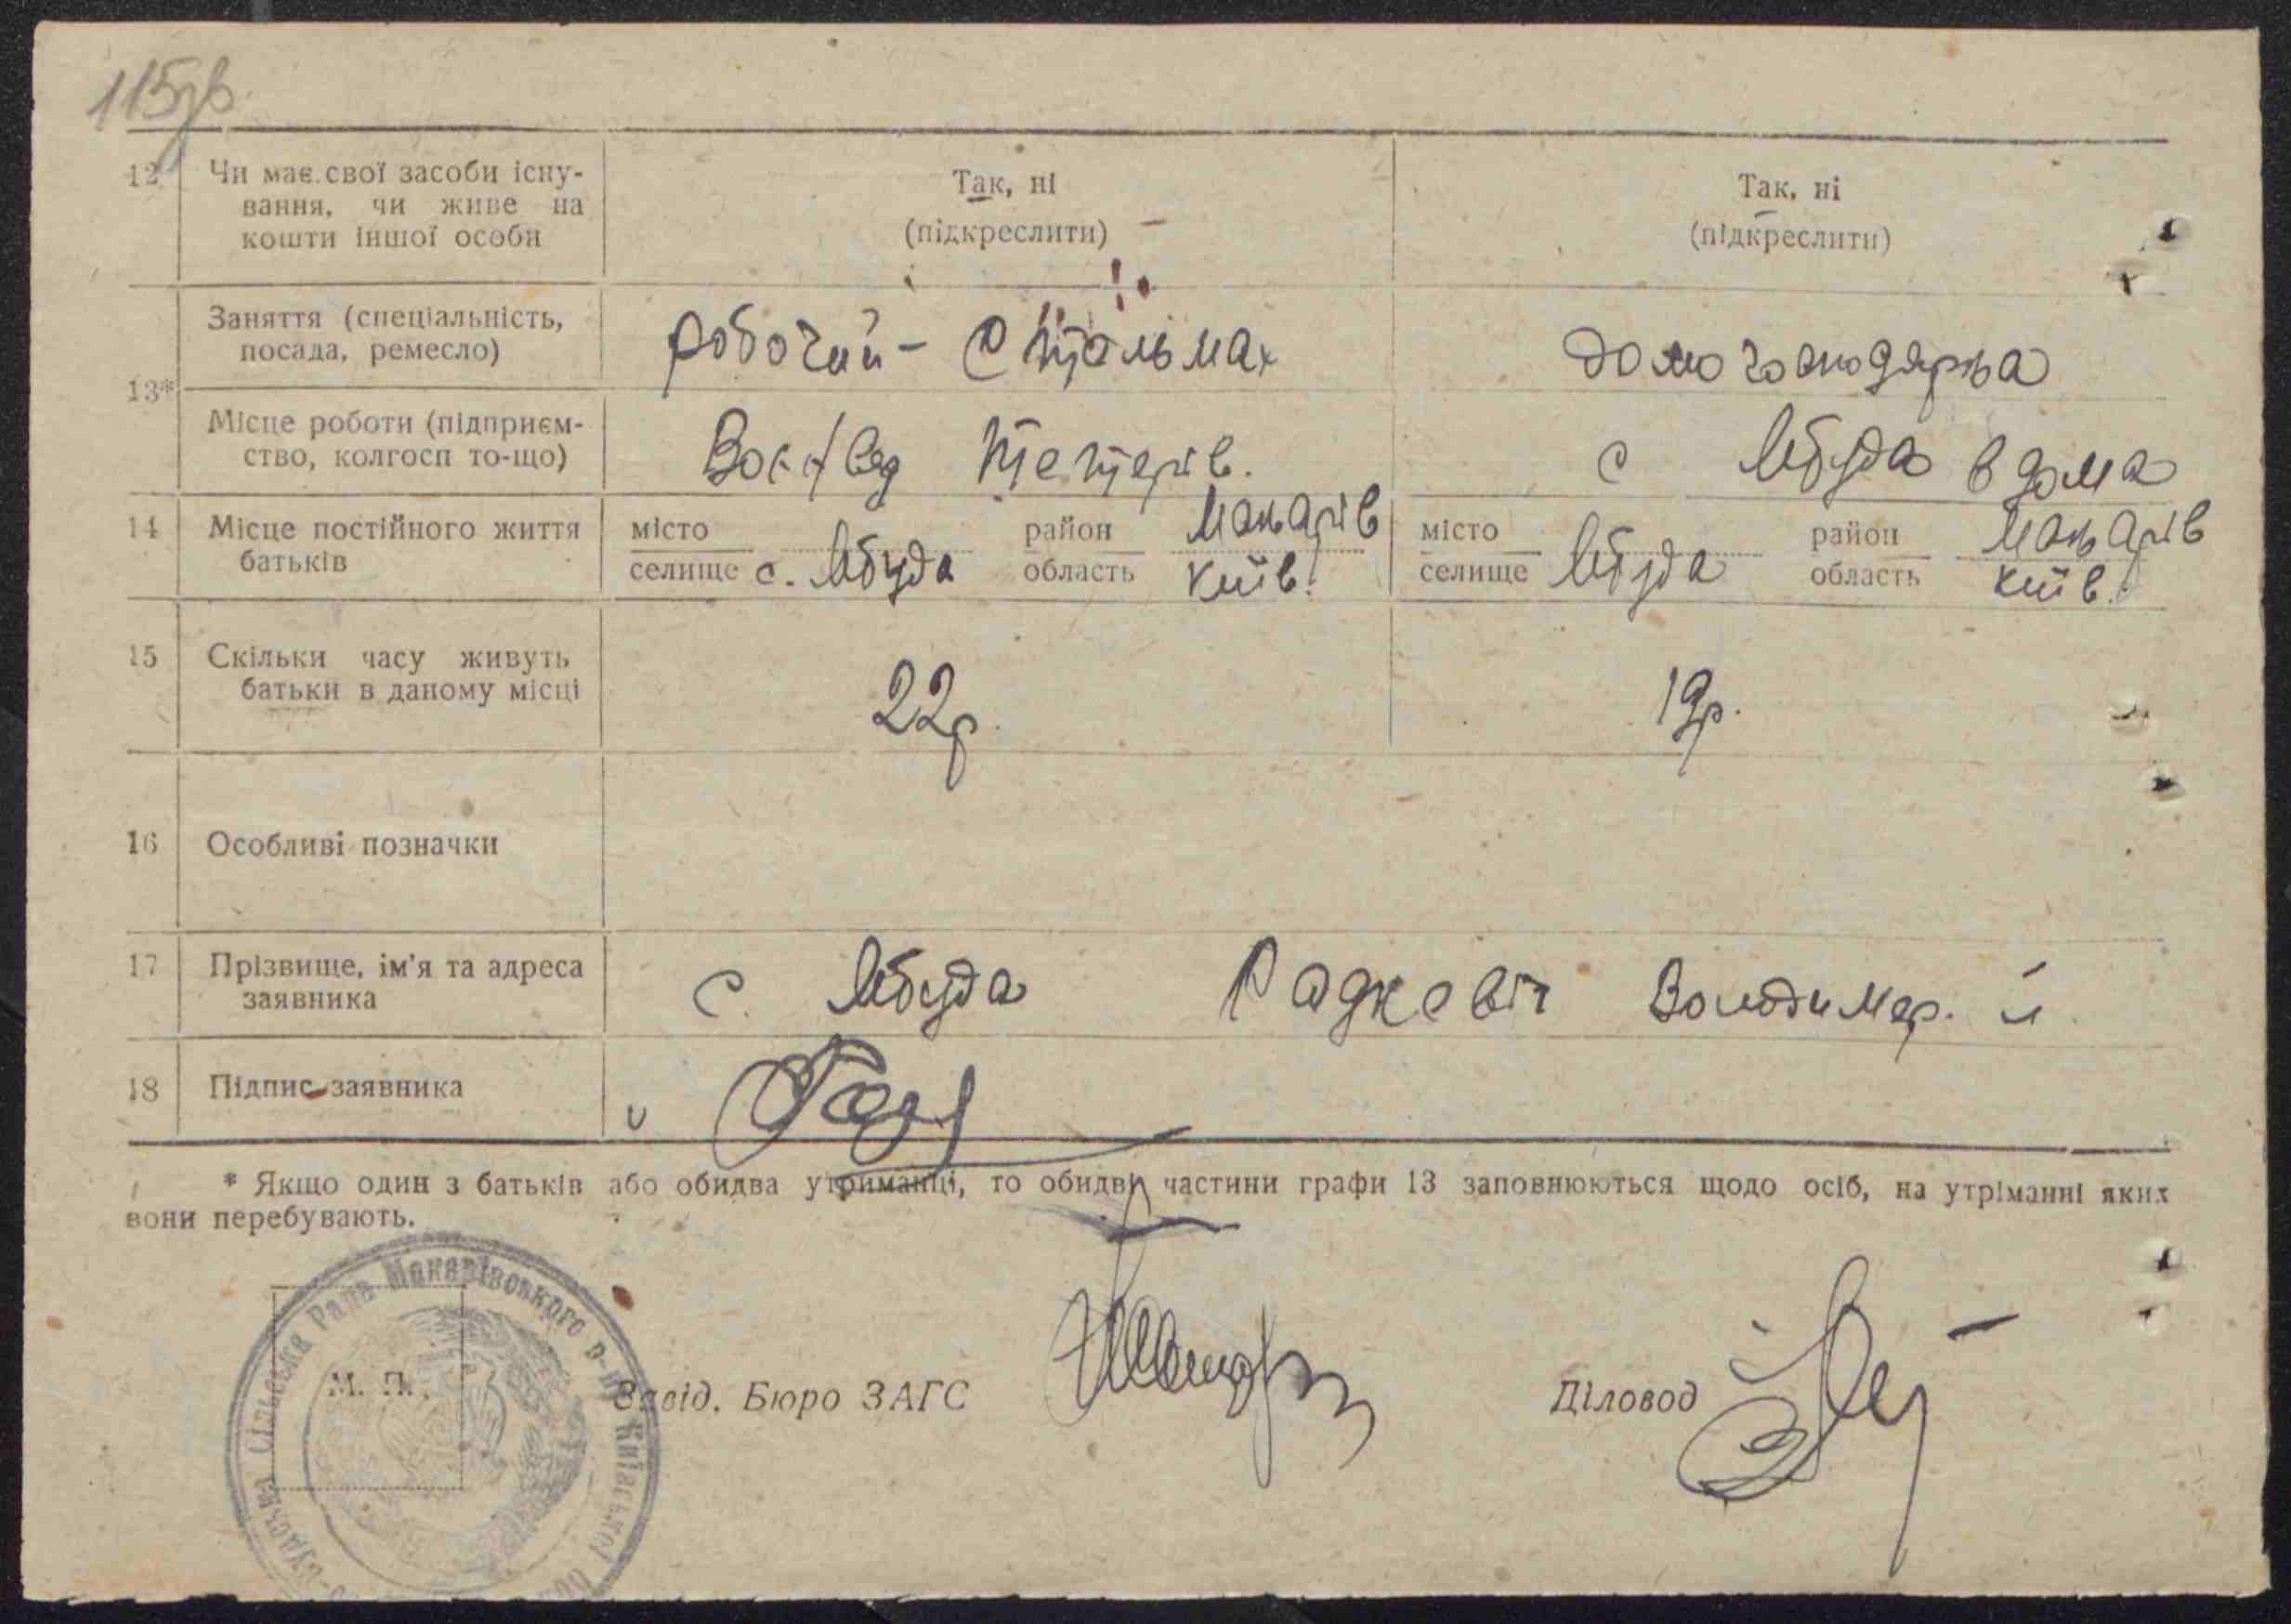 115зв
12 Чи має свої засоби існу- Так, ні Так, ні
вання, чи живе на (підкреслити) (підкреслити)
кошти іншої особи
Заняття (спеціальність, робочий - стельмах домогосподарка
посада, ремесло)
13*
Місце роботи (підприєм- Тетерів. с Мбуда вдома
ство, колгосп то-що)
14 Місце постійного життя місто район Макарів місто район Макарів
батьків селище с. Мбуда область Київ. селище Мбуда область Київ.
15 Скільки часу живуть 22р. 19р.
батьки в даному місці
16 Особливі позначки
17 Прізвище, ім'я та адреса с. Мбуда Радкевіч Володимер. Й
заявника
18 Підпис заявника
* Якщо один з батьків або обидва утриманці, то обидві частини графи 13 заповнюються щодо осіб, на утріманні яких
вони перебувають.
Сільська Рада Макарівського р-ну Київської
М. П.
Завід. Бюро ЗАГС Діловод